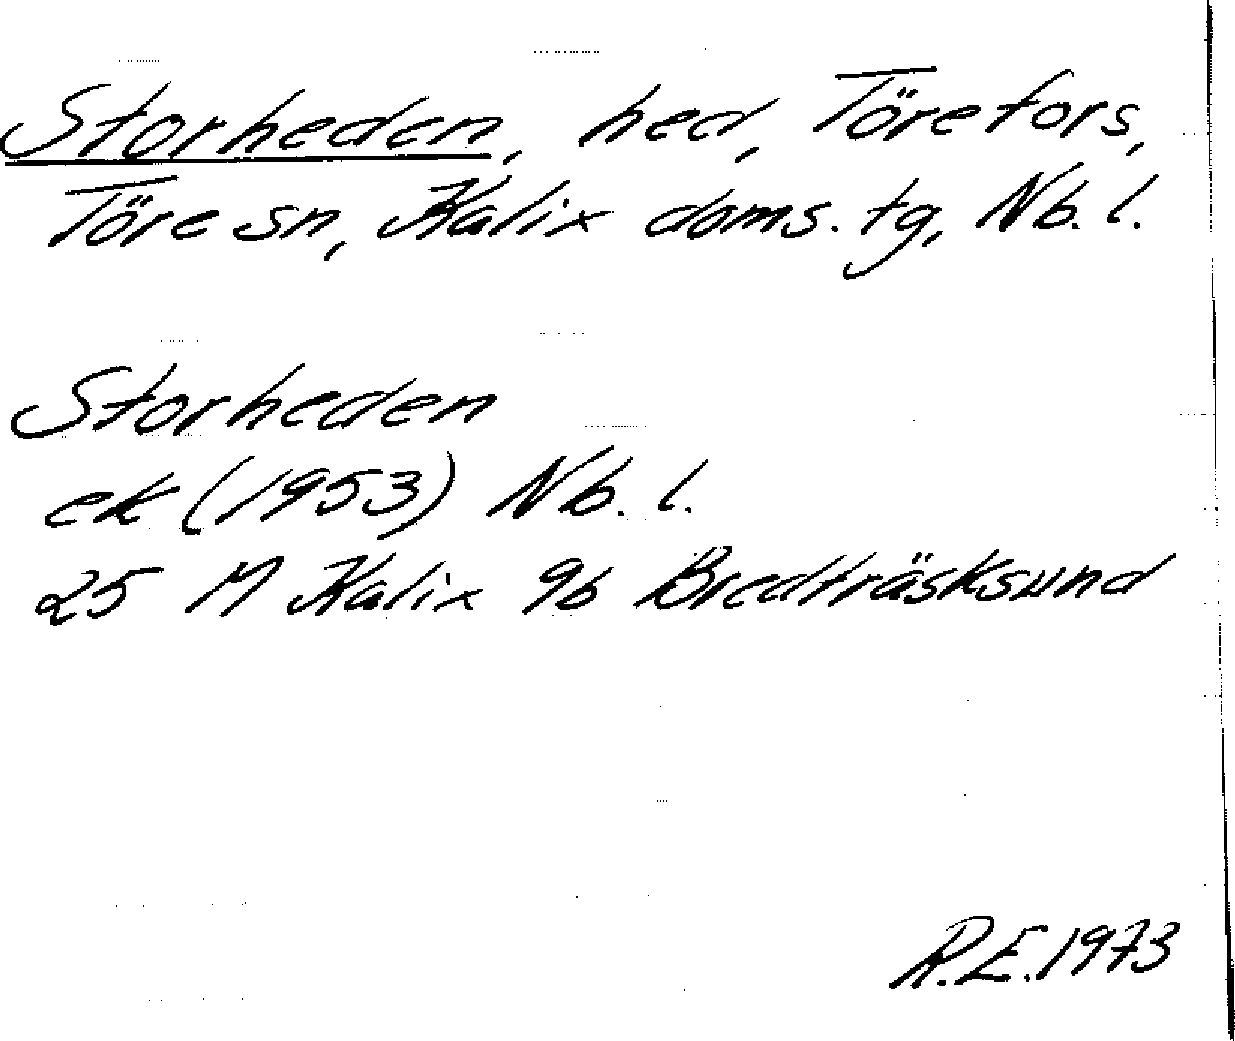 Storheden, hed, Törefors,
Töre sn, Kalix doms. tg, Nb. l.
Storheden
ek (1953) Nb. l.
25 M Kalix 9b Bredträsksund
R.E. 1973